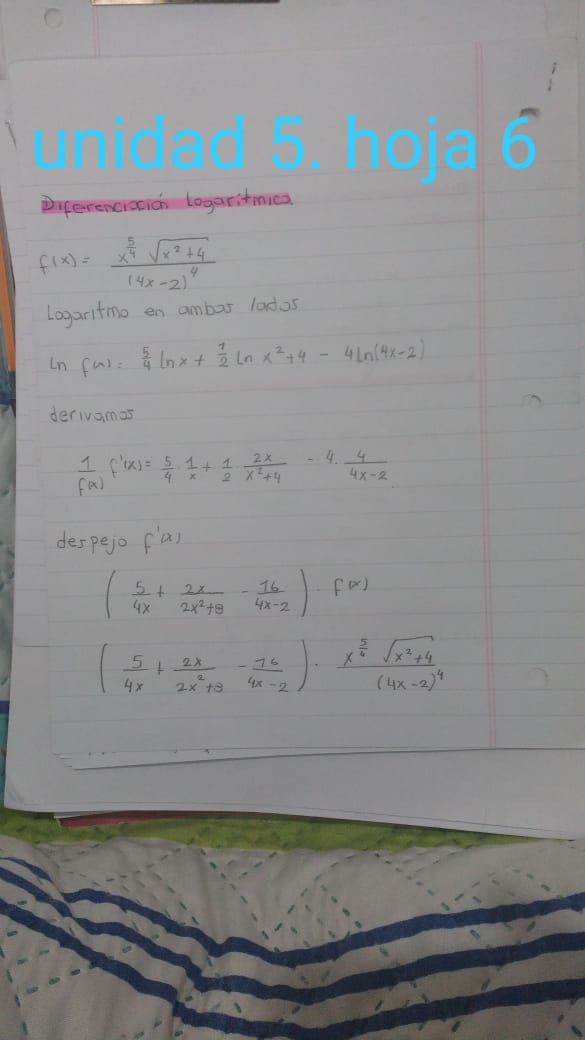 unidad 5. hoja 6
Diferenciación Logarítmica
f(x) = x^(5/4) √(x²+4) / (4x-2)⁴
Logaritmo en ambos lados
Ln f(x) = 5/4 ln x + 1/2 Ln x²+4 - 4Ln(4x-2)
derivamos
1/f(x) f'(x) = 5/4 · 1/x + 1/2 · 2x/(x²+4) - 4 · 4/(4x-2)
despejo f'(x)
(5/4x + 2x/(2x²+8) - 16/(4x-2)) · f(x)
(5/4x + 2x/(2x²+8) - 16/(4x-2)) · x^(5/4) √(x²+4) / (4x-2)⁴